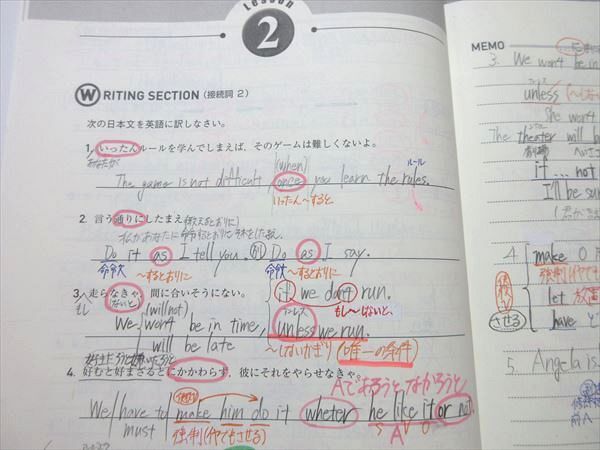 Lesson
2
WRITING SECTION (接続詞 2)
次の日本文を英語に訳しなさい。
1. いったんルールを学んでしまえば、そのゲームは難しくないよ。
あなたが
(when)
ルール
The game is not difficult once you learn the rules.
いったん~すると
2. 言う通りにしたまえ
私があなたに
Do it as I tell you. Do as I say.
命令文 ~するとおりに 命令文 ~するとおりに
3. 走らなきゃ、間に合いそうにない。
もし ないと (will not) if we don't run.
もし~しないと、
We won't be in time, unless we run.
will be late ~しないかぎり (唯一の条件)
4. 好むと好まざるとにかかわらず、彼にそれをやらせなきゃ。
Aであろうとなかろうと
We have to make him do it wheter he like it or not.
must 強制(イヤでもさせる) S V O
A
MEMO
3. We won't be in
unless
She won't
The theater will b
劇場
it ... not
I'll be su
4. make O
強制(イヤでも
let 放置
させる
have
5. Angela is